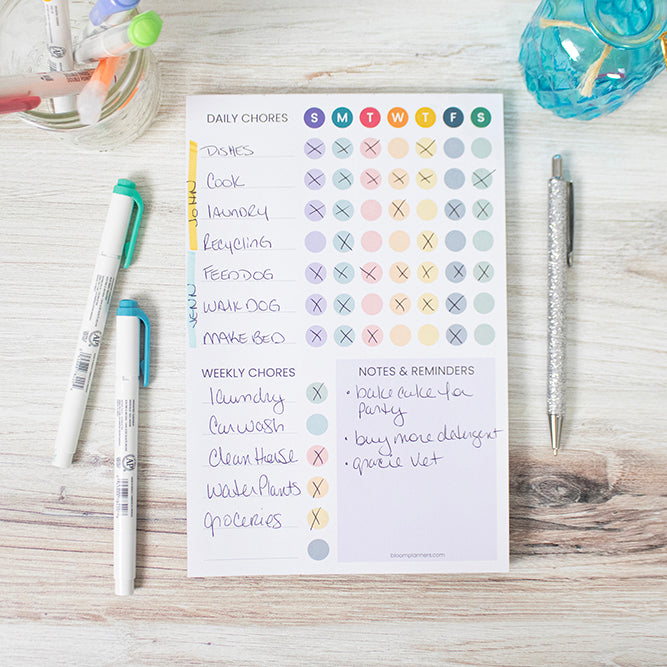 DAILY CHORES S M T W T F S
DISHES
COOK
LAUNDRY
RECYCLING
FEED DOG
WALK DOG
MAKE BED
JOHN
JENN
WEEKLY CHORES
laundry
Car wash
Clean House
Water Plants
groceries
NOTES & REMINDERS
• bake cake for
party
• buy more detergent
• gracie vet
bloomplanners.com